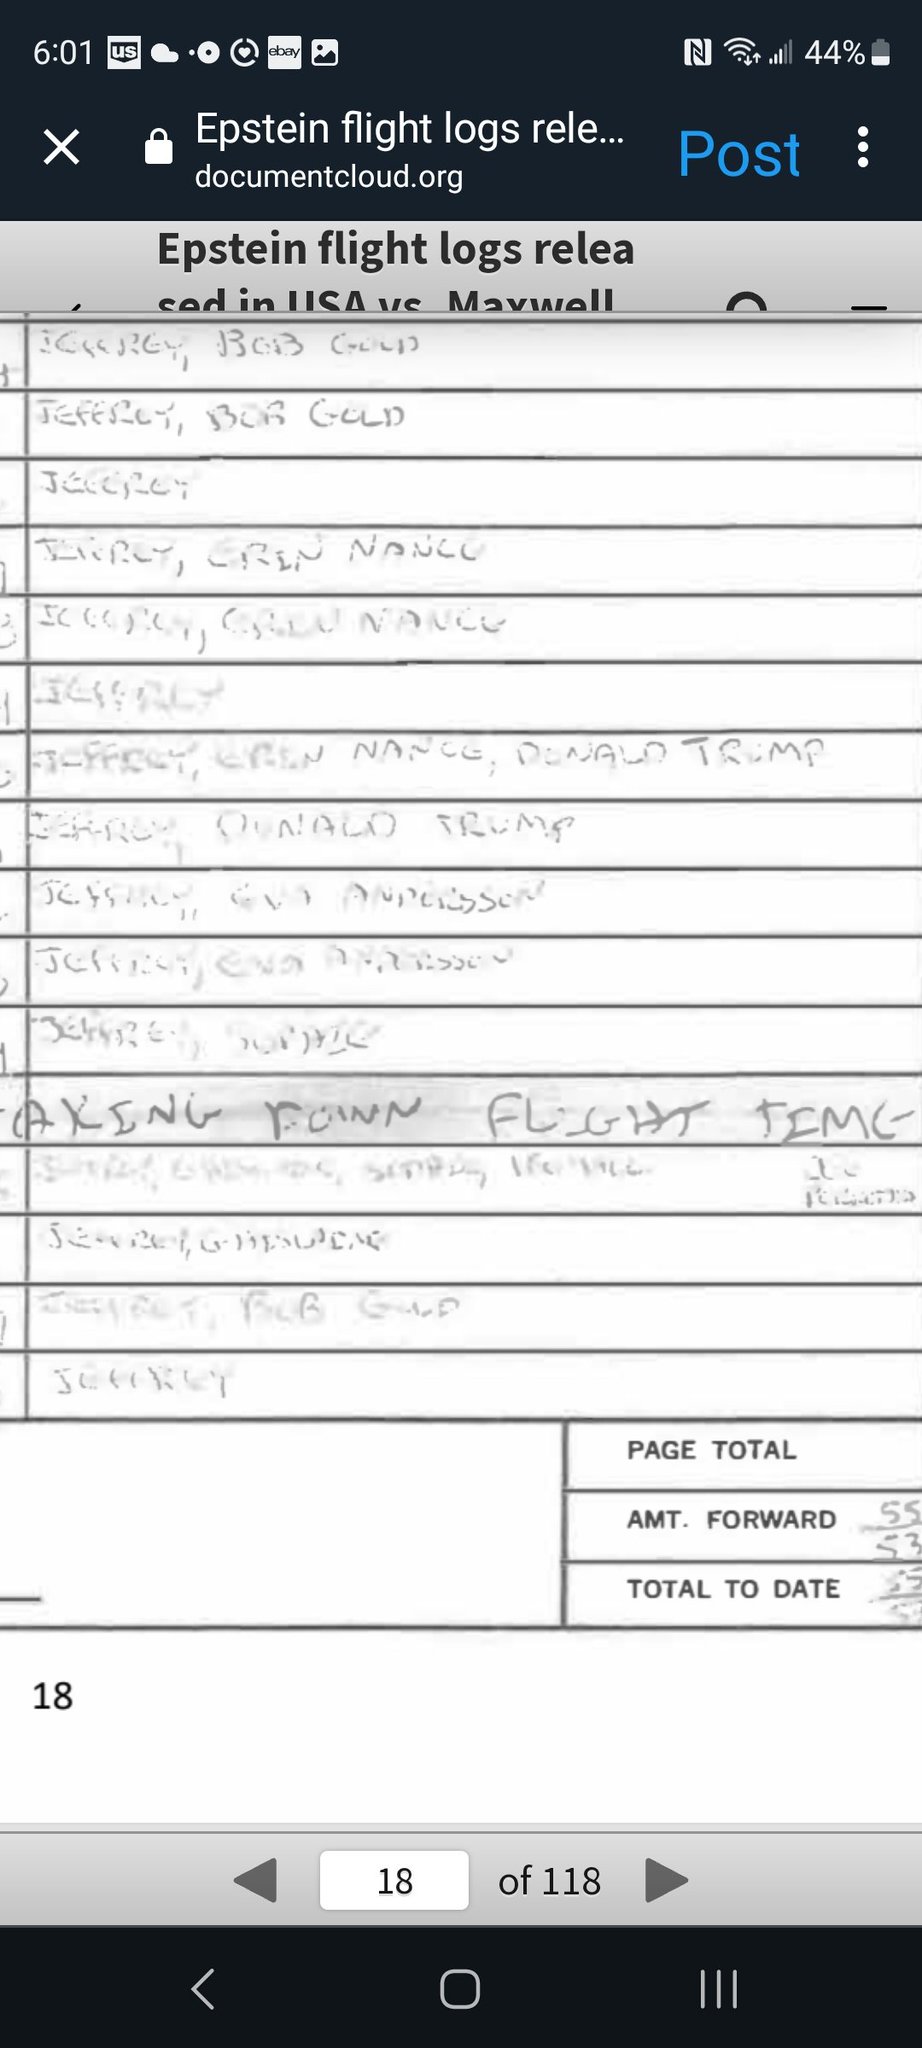 6:01 us ebay 44%
Epstein flight logs rele...
documentcloud.org
Post
Epstein flight logs relea
sed in USA vs. Maxwell
JEFFREY, BOB GOLD
JEFFREY, BOB GOLD
JEFFREY
JEFFREY, EREN NANCE
JEFFREY, EREN NANCE
JEFFREY
JEFFREY, EREN NANCE, DONALD TRUMP
JEFFREY, DONALD TRUMP
JEFFREY, EVA ANDERSSON
JEFFREY, EVA ANDERSSON
JEFFREY, SOPHIE
FLIGHT TIME
JEFFREY
JEFFREY, BOB GOLD
JEFFREY
PAGE TOTAL
AMT. FORWARD 55
53
TOTAL TO DATE
18
18 of 118